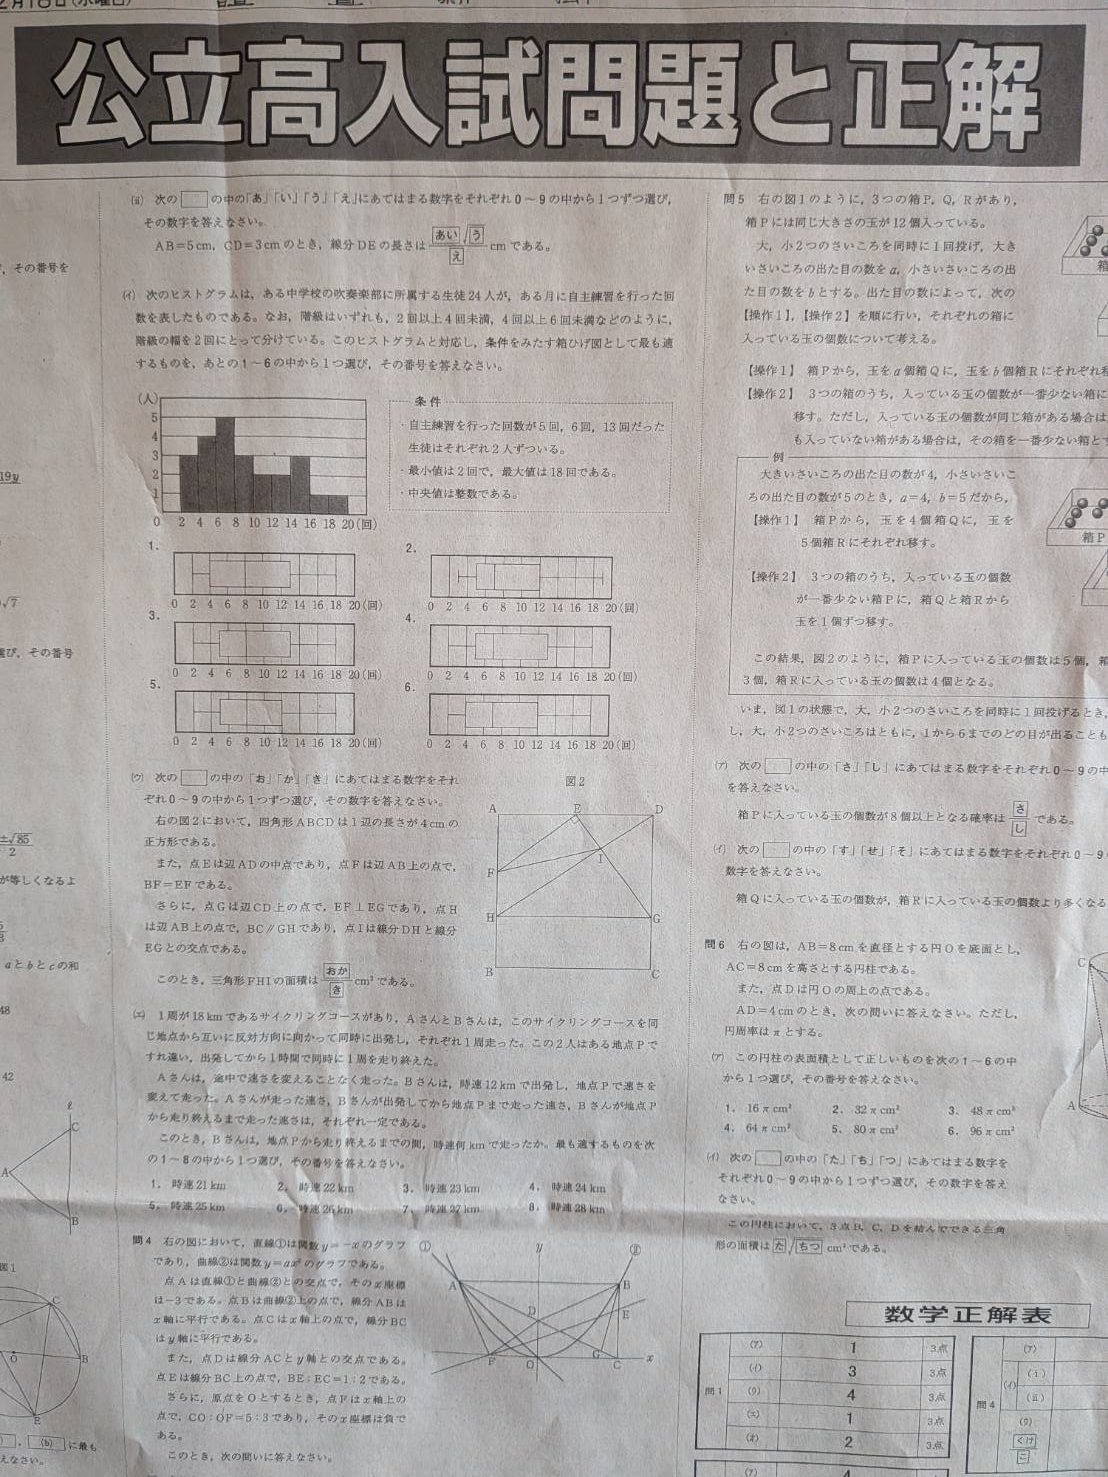 2月18日(水曜日)
公立高入試問題と正解
, その番号を
19y
√7
選び, その番号
±√85
2
が等しくなるよ
aとbとcの和
48
42
ℓ
C
A
B
図1
C
O
B
E
, (b) に最も
えなさい。
(ⅱ) 次の□の中の「あ」「い」「う」「え」にあてはまる数字をそれぞれ0～9の中から1つずつ選び,
その数字を答えなさい。
AB=5cm, CD=3cmのとき, 線分DEの長さは あい√う/え cmである。
(イ) 次のヒストグラムは, ある中学校の吹奏楽部に所属する生徒24人が, ある月に自主練習を行った回
数を表したものである。なお, 階級はいずれも, 2回以上4回未満, 4回以上6回未満などのように,
階級の幅を2回にとって分けている。このヒストグラムと対応し, 条件をみたす箱ひげ図として最も適
するものを, あとの1～6の中から1つ選び, その番号を答えなさい。
(人)
5
4
3
2
1
0 2 4 6 8 10 12 14 16 18 20(回)
条件
・自主練習を行った回数が5回, 6回, 13回だった
生徒はそれぞれ2人ずついる。
・最小値は2回で, 最大値は18回である。
・中央値は整数である。
1.
0 2 4 6 8 10 12 14 16 18 20(回)
2.
0 2 4 6 8 10 12 14 16 18 20(回)
3.
0 2 4 6 8 10 12 14 16 18 20(回)
4.
0 2 4 6 8 10 12 14 16 18 20(回)
5.
0 2 4 6 8 10 12 14 16 18 20(回)
6.
0 2 4 6 8 10 12 14 16 18 20(回)
(ウ) 次の□の中の「お」「か」「き」にあてはまる数字をそれ
ぞれ0～9の中から1つずつ選び, その数字を答えなさい。
右の図2において, 四角形ABCDは1辺の長さが4cmの
正方形である。
また, 点Eは辺ADの中点であり, 点Fは辺AB上の点で,
BF=EFである。
さらに, 点Gは辺CD上の点で, EF⊥EGであり, 点H
は辺AB上の点で, BC∥GHであり, 点Iは線分DHと線分
EGとの交点である。
このとき, 三角形FHIの面積は おか/き cm²である。
図2
A E D
I
F
H G
B C
(エ) 1周が18kmであるサイクリングコースがあり, AさんとBさんは, このサイクリングコースを同
じ地点から互いに反対方向に向かって同時に出発し, それぞれ1周走った。この2人はある地点Pで
すれ違い, 出発してから1時間で同時に1周を走り終えた。
Aさんは, 途中で速さを変えることなく走った。Bさんは, 時速12kmで出発し, 地点Pで速さを
変えて走った。Aさんが走った速さ, Bさんが出発してから地点Pまで走った速さ, Bさんが地点P
から走り終えるまで走った速さは, それぞれ一定である。
このとき, Bさんは, 地点Pから走り終えるまでの間, 時速何kmで走ったか。最も適するものを次
の1～8の中から1つ選び, その番号を答えなさい。
1. 時速21km 2. 時速22km 3. 時速23km 4. 時速24km
5. 時速25km 6. 時速26km 7. 時速27km 8. 時速28km
問4 右の図において, 直線①は関数y=-xのグラフ
であり, 曲線②は関数y=ax²のグラフである。
点Aは直線①と曲線②との交点で, そのx座標
は-3である。点Bは曲線②上の点で, 線分ABは
x軸に平行である。点Cはx軸上の点で, 線分BC
はy軸に平行である。
また, 点Dは線分ACとy軸との交点である。
点Eは線分BC上の点で, BE:EC=1:2である。
さらに, 原点をOとするとき, 点Fはx軸上の
点で, CO:OF=5:3であり, そのx座標は負で
ある。
このとき, 次の問いに答えなさい。
① y ②
A B
D E
F O G C x
問5 右の図1のように, 3つの箱P, Q, Rがあり,
箱Pには同じ大きさの玉が12個入っている。
大, 小2つのさいころを同時に1回投げ, 大き
いさいころの出た目の数をa, 小さいさいころの出
た目の数をbとする。出た目の数によって, 次の
【操作1】, 【操作2】を順に行い, それぞれの箱に
入っている玉の個数について考える。
箱
【操作1】 箱Pから, 玉をa個箱Qに, 玉をb個箱Rにそれぞれ移
【操作2】 3つの箱のうち, 入っている玉の個数が一番少ない箱に
移す。ただし, 入っている玉の個数が同じ箱がある場合は
も入っていない箱がある場合は, その箱を一番少ない箱と
例
大きいさいころの出た目の数が4, 小さいさいこ
ろの出た目の数が5のとき, a=4, b=5だから,
【操作1】 箱Pから, 玉を4個箱Qに, 玉を
5個箱Rにそれぞれ移す。
箱P
【操作2】 3つの箱のうち, 入っている玉の個数
が一番少ない箱Pに, 箱Qと箱Rから
玉を1個ずつ移す。
この結果, 図2のように, 箱Pに入っている玉の個数は5個, 箱
3個, 箱Rに入っている玉の個数は4個となる。
いま, 図1の状態で, 大, 小2つのさいころを同時に1回投げるとき,
し, 大, 小2つのさいころはともに, 1から6までのどの目が出ることも
(ア) 次の□の中の「さ」「し」にあてはまる数字をそれぞれ0～9の中
を答えなさい。
箱Pに入っている玉の個数が8個以上となる確率は さ/し である。
(イ) 次の□の中の「す」「せ」「そ」にあてはまる数字をそれぞれ0～9
数字を答えなさい。
箱Qに入っている玉の個数が, 箱Rに入っている玉の個数より多くなる
問6 右の図は, AB=8cmを直径とする円Oを底面とし,
AC=8cmを高さとする円柱である。
また, 点Dは円Oの周上の点である。
AD=4cmのとき, 次の問いに答えなさい。ただし,
円周率はπとする。
C
A
(ア) この円柱の表面積として正しいものを次の1～6の中
から1つ選び, その番号を答えなさい。
1. 16πcm² 2. 32πcm² 3. 48πcm²
4. 64πcm² 5. 80πcm² 6. 96πcm²
(イ) 次の□の中の「た」「ち」「つ」にあてはまる数字を
それぞれ0～9の中から1つずつ選び, その数字を答え
なさい。
この円柱において, 3点B, C, Dを結んでできる三角
形の面積は た√ちつ cm²である。
数学正解表
問1
(ア) 1 3点
(イ) 3 3点
(ウ) 4 3点
(エ) 1 3点
(オ) 2 3点
(ア) 4
問4
(ア)
(イ) (ⅰ)
(ⅱ)
(ウ)
くけ
こ